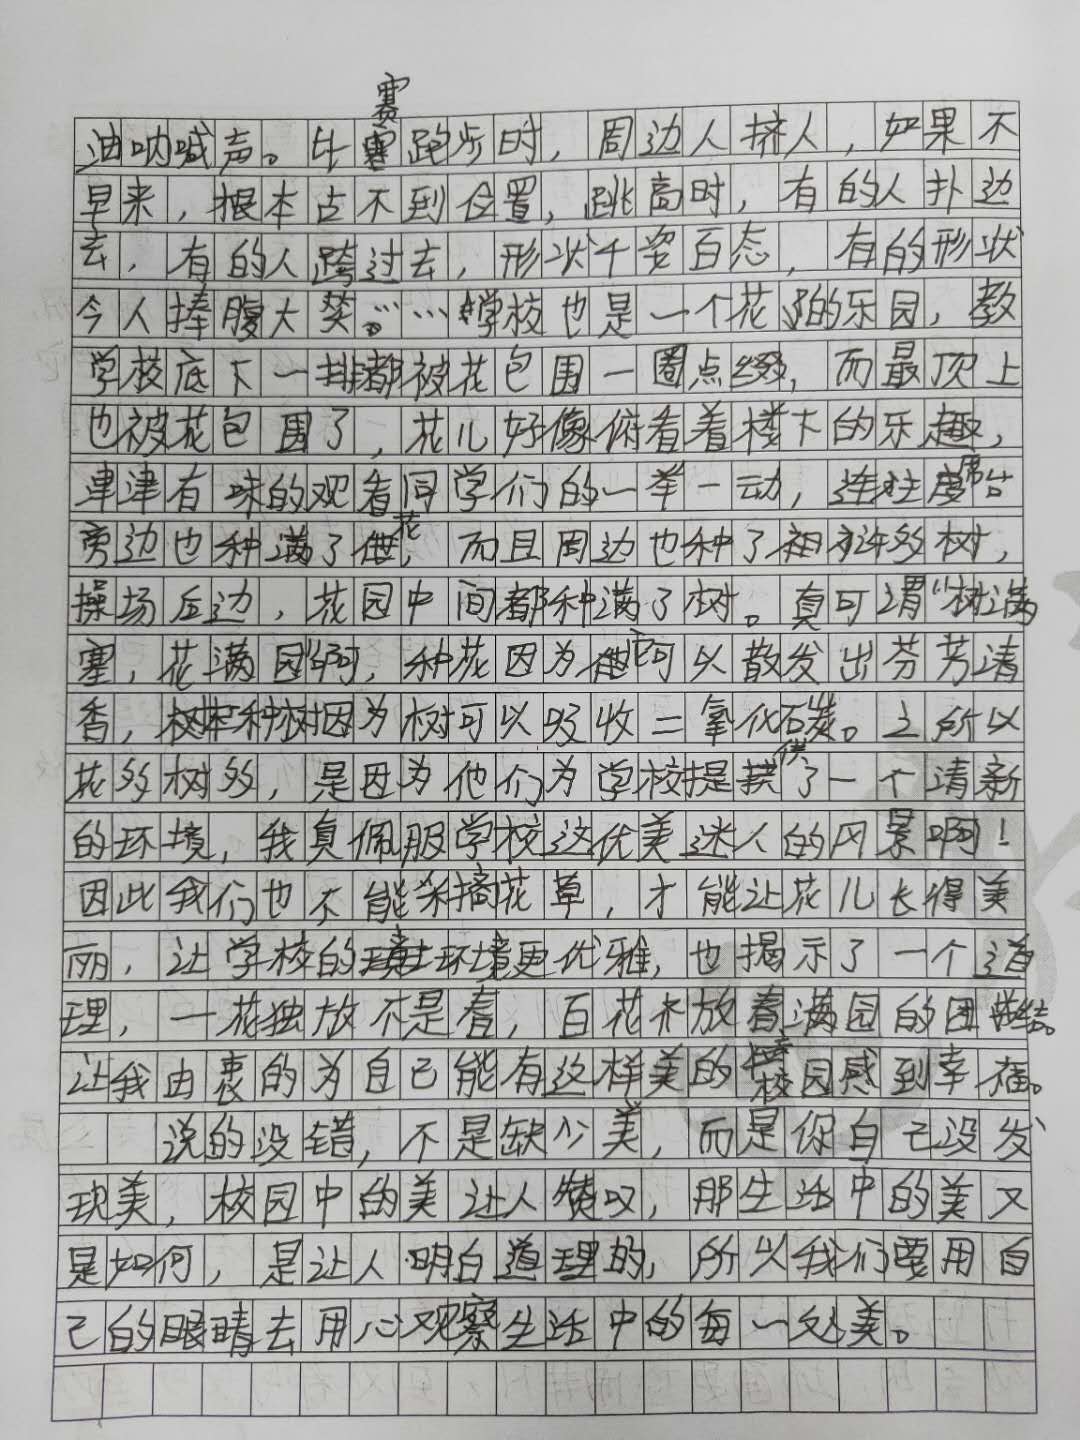 油呐喊声。比赛跑步时，周边人挤人，如果不
早来，根本占不到位置，跳高时，有的人扑边
去，有的人跨过去，形状千姿百态，有的形状
令人捧腹大笑。……学校也是一个花的乐园，教
学校底下一排都被花包围一圈点缀，而最顶上
也被花包围了，花儿好像俯看着楼下的乐趣，
津津有味的观看同学们的一举一动，连主席台
旁边也种满了花，而且周边也种了许多树，
操场后边，花园中间都种满了树。真可谓“树满
塞，花满园”啊，种花因为它可以散发出芬芳清
香，种树因为树可以吸收二氧化碳。之所以
花多树多，是因为他们为学校提供了一个清新
的环境，我真佩服学校这优美迷人的风景啊！
因此我们也不能采摘花草，才能让花儿长得美
丽，让学校的环境更优雅，也揭示了一个道
理，一花独放不是春，百花齐放春满园的团结。
让我由衷的为自己能有这样美的校园感到幸福。
说的没错，不是缺少美，而是你自己没发
现美，校园中的美让人赞叹，那生活中的美又
是如何，是让人明白道理的，所以我们要用自
己的眼睛去用心观察生活中的每一处美。